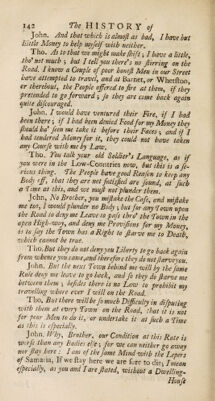 142 The HISTORY of
John. And that which is almost as bad, I have but
little Money to help myself with neither.
Tho. As to that we might make shift; I have a little,
tho' not much; but I tell you there's no stirring on the
Road. I know a Couple of poor honest Men in our Street
have attempted to travel, and at Barnet, or Whetston,
or thereabout, the People offered to fire at them, if they
pretended to go forward; so they are come back again
quite discouraged.
John. I would have ventured their Fire, if I had
been there; if I had been denied Food for my Money they
should ha' seen me take it before their Faces; and if I
had tendered Money for it, they could not have taken
any Course with me by Law.
Tho. You talk your old Soldier's Language, as if
you were in the Low-Countries now, but this is a se-
rious thing. The People have good Reason to keep any
Body off, that they are not satisfied are sound, at such
a Time as this, and we must not plunder them.
John, No Brother, you mistake the Case, and mistake
me too, I would plunder no Body; but for any Town upon
the Road to deny me Leave to pass thro' the Town in the
open High-way, and deny me Provisions for my Money,
is to say the Town has a Right to starve me to Death,
which cannot be true.
Tho. But they do not deny you Liberty to go back again
from whence you came, and therefore they do not starve you.
John. But the next Town behind me will by the same
Rule deny me leave to go back, and so they do starve me
between them; besides there is no Law to prohibit my
travelling where ever I will on the Road.
Tho. But there will be so much Difficulty in disputing
with them at every Town on the Road, that it is not
for poor Men to do it, or undertake it at such a Time
as this is especially.
John. Why, Brother, our Condition at this Rate is
worse than any Bodies else; for we can neither go away
nor stay here; I am of the same Mind with the Lepers
of Samaria, If we stay here we are sure to die; I mean
especially, as you and I are stated, without a Dwelling-
House